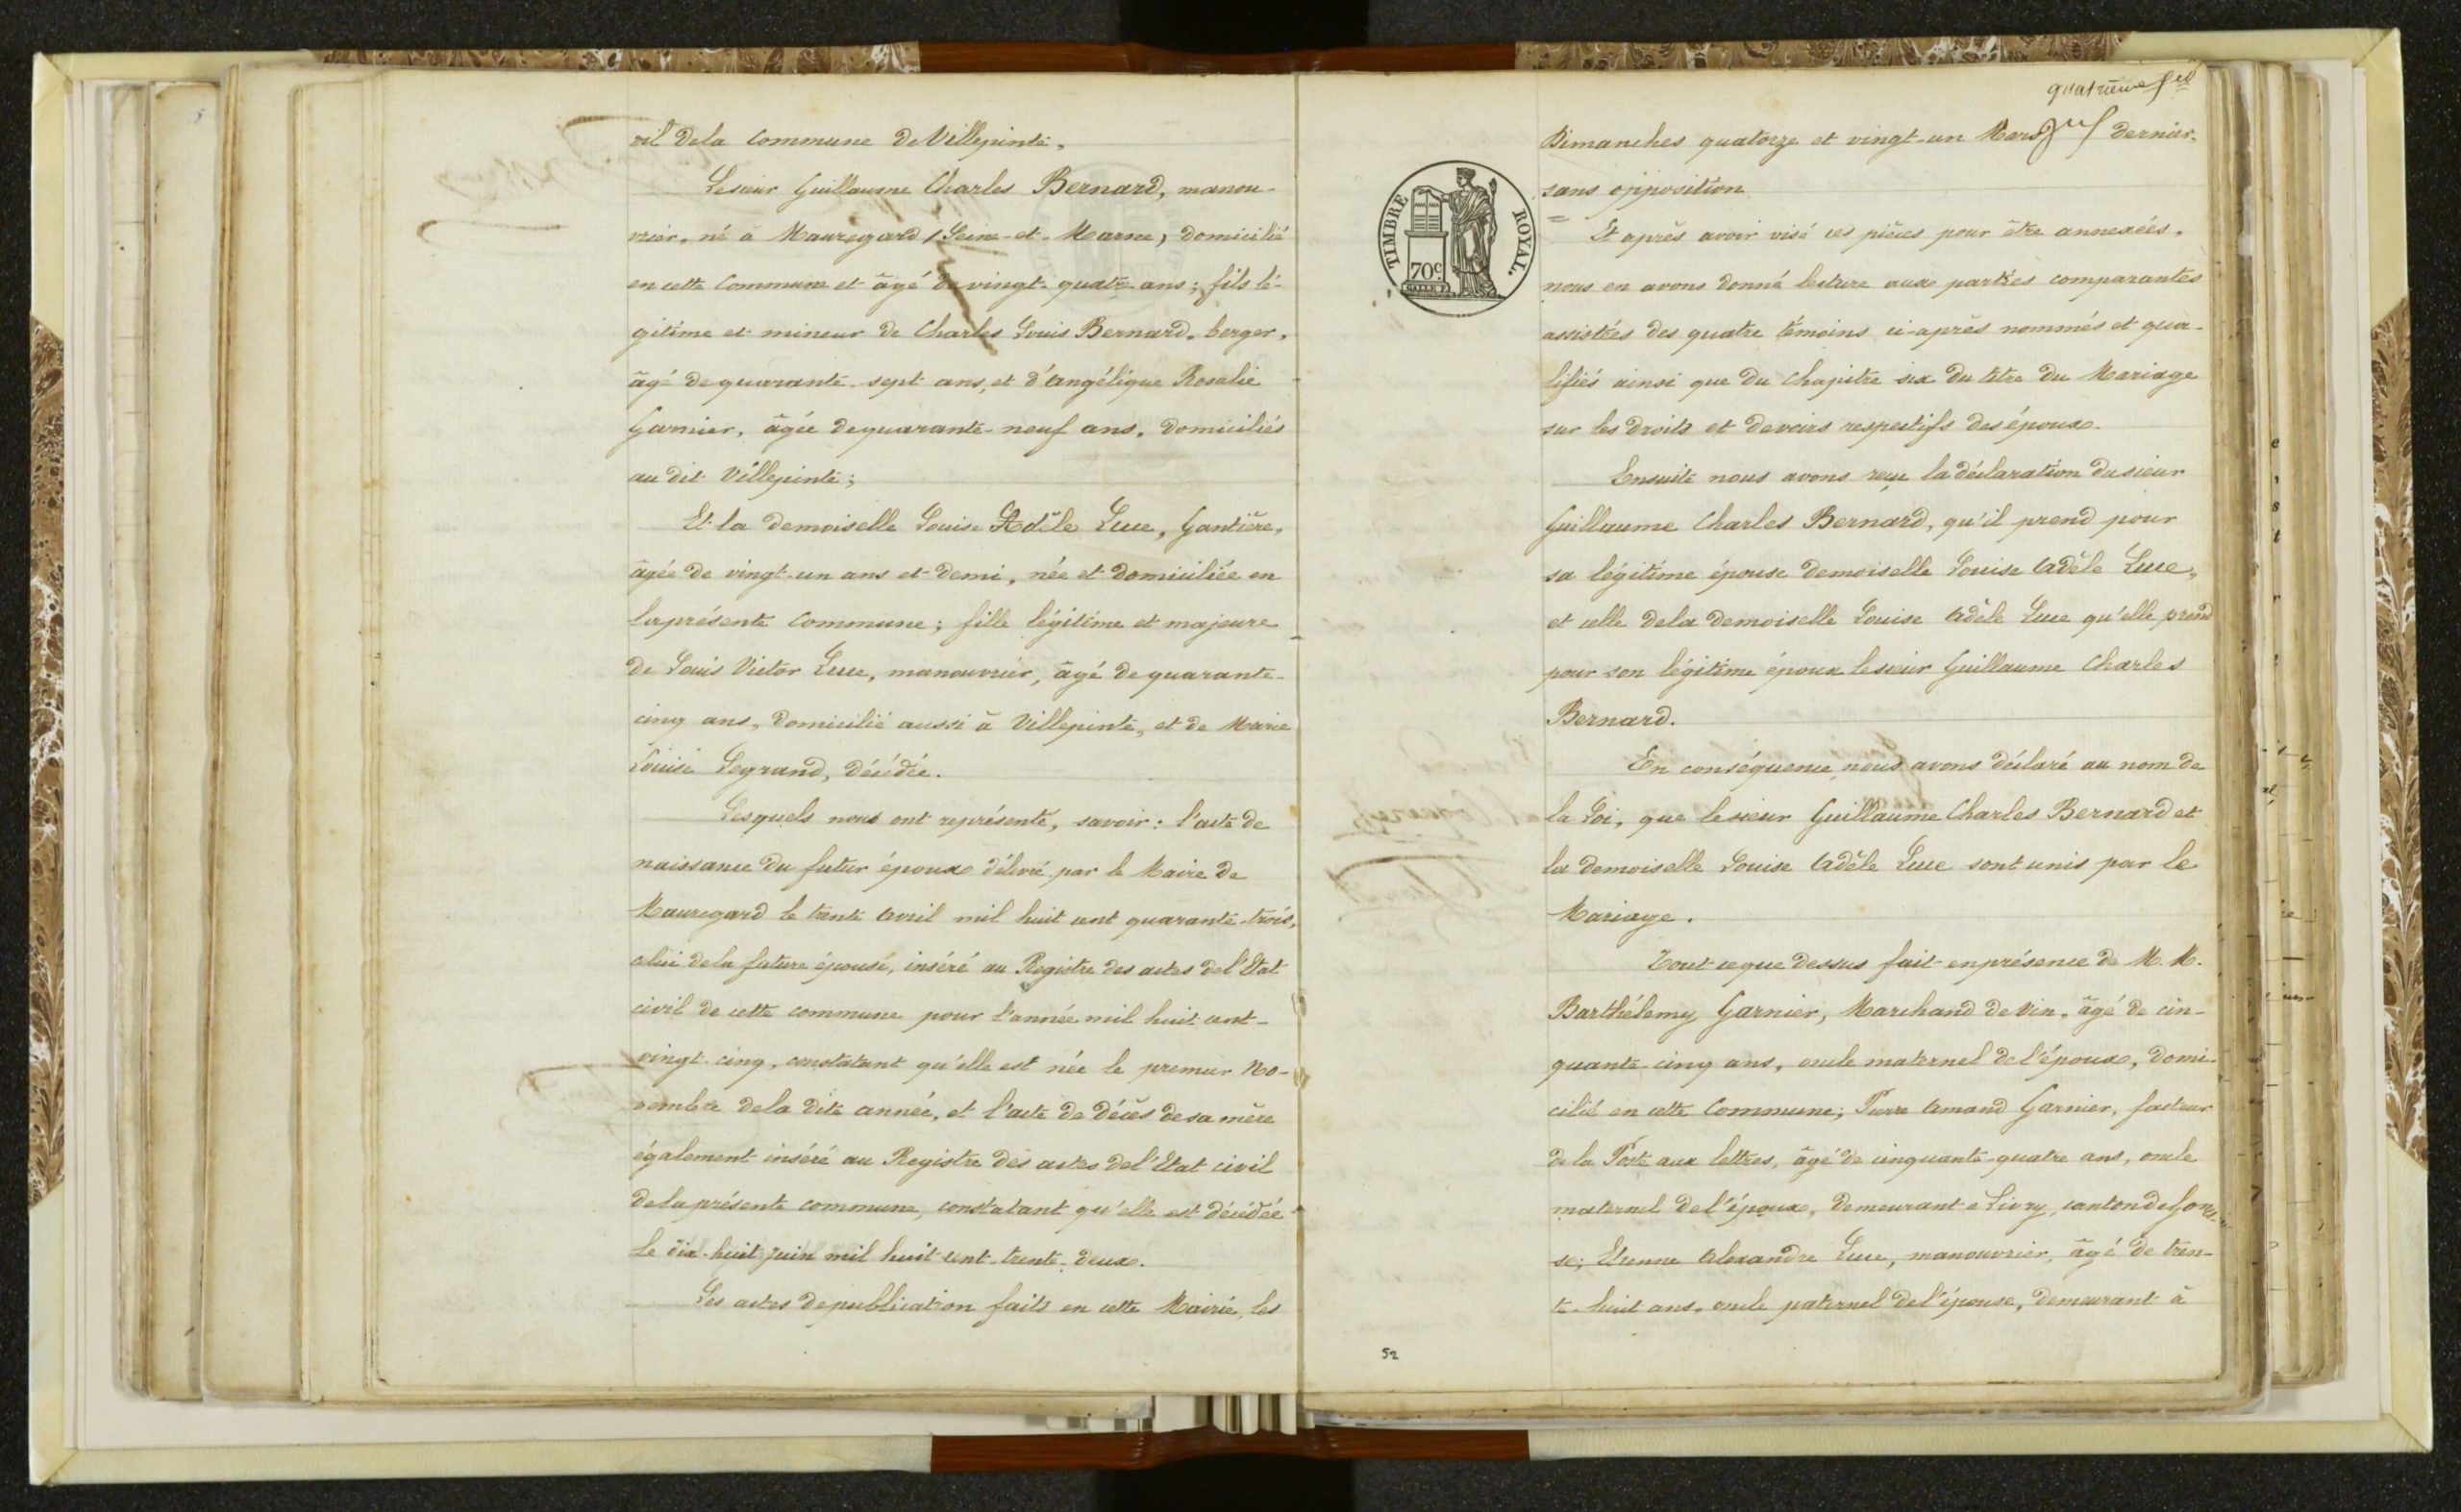 vil de la Commune de Villepinte,
Le sieur Guillaume Charles Bernard, manou-
vrier, né à Mauregard (Seine-et-Marne) domicilié
en cette Commune et âgé de vingt-quatre ans; fils lé-
gitime et mineur de Charles Louis Bernard, berger,
âgé de quarante-sept ans, et d'Angélique Rosalie
Garnier, âgée de quarante-neuf ans, domiciliés
au dit Villepinte;
Et la demoiselle Louise Adèle Luce, Gantière,
âgée de vingt-un ans et demi, née et domiciliée en
la présente Commune; fille légitime et majeure
de Louis Victor Luce, manouvrier, âgé de quarante-
cinq ans, domicilié aussi à Villepinte, et de Marie
Louise Legrand, décédée.
Lesquels nous ont représenté, savoir: l'acte de
naissance du futur époux délivré par le Maire de
Mauregard le trente avril mil huit cent quarante-trois,
celui de la future épouse, inséré au Registre des actes de l'Etat
civil de cette commune pour l'année mil huit cent-
vingt-cinq, constatant qu'elle est née le premier No-
vembre de la dite année, et l'acte de décès de sa mère
également inséré au Registre des actes de l'Etat civil
de la présente commune, constatant qu'elle est décédée
le dix-huit juin mil huit cent-trente-deux.
Les actes de publication faits en cette Mairie, les
quatrième
Dimanches quatorze et vingt-un Mars dernier,
sans opposition
TIMBRE ROYAL.
70c.
Et après avoir visé ces pièces pour être annexées,
nous en avons donné lecture aux parties comparantes
assistées des quatre témoins ci-après nommés et qua-
lifiés ainsi que du Chapitre six du titre du Mariage
sur les droits et devoirs respectifs des époux.
Ensuite nous avons reçu la déclaration du sieur
Guillaume Charles Bernard, qu'il prend pour
sa légitime épouse demoiselle Louise Adèle Luce,
et celle de la demoiselle Louise Adèle Luce qu'elle prend
pour son légitime époux le sieur Guillaume Charles
Bernard.
En conséquence nous avons déclaré au nom de
la Loi, que le sieur Guillaume Charles Bernard et
la demoiselle Louise Adèle Luce sont unis par le
Mariage.
Tout ce que dessus fait en présence de M. M.
Barthélemy Garnier, Marchand de Vin, âgé de cin-
quante-cinq ans, oncle maternel de l'époux, domi-
cilié en cette Commune; Pierre Amand Garnier, facteur
de la Poste aux lettres, âgé de cinquante-quatre ans, oncle
maternel de l'époux, demeurant à Livry, canton de Gones-
se; Etienne Alexandre Luce, manouvrier, âgé de tren-
te-huit ans, oncle paternel de l'épouse, demeurant à
52